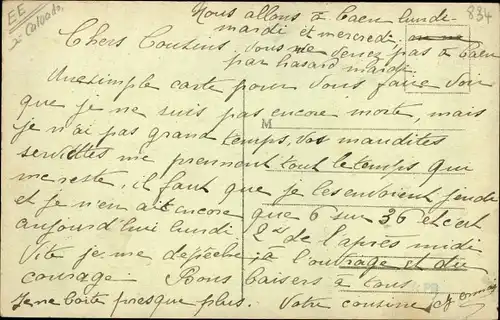 EE
Calvados
834
Nous allons à Caen lundi
mardi et mercredi
Chers Cousins, vous ne venez pas à Caen
par hasard mardi
Une simple carte pour vous faire voir
que je ne suis pas encore morte, mais
M
je n'ai pas grand temps, vos maudites
serviettes me prennent tout le temps qui
me reste, il faut que je les envoient jeudi
et je n'en ait encore que 6 sur 36 et c'est
aujourd'hui lundi 2 de l'après midi
Vite je me dépêche, à l'ouvrage et du
courage. Bons baisers à tous
Je ne boite presque plus. Votre cousine